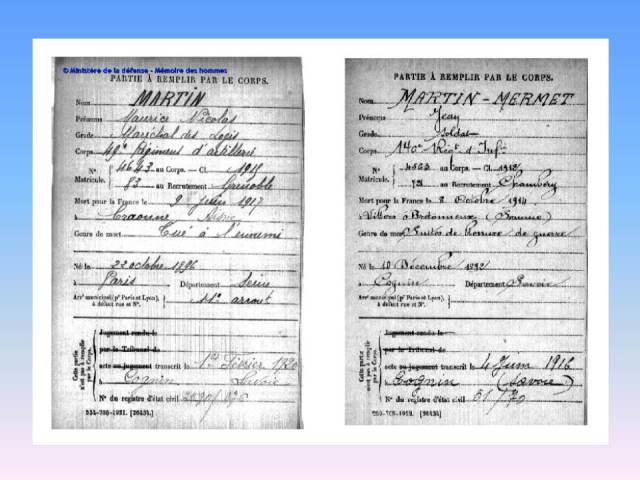 © Ministère de la défense - Mémoire des hommes
PARTIE À REMPLIR PAR LE CORPS.
Nom MARTIN
Prénoms Maurice Nicolas
Grade Maréchal des Logis
Corps Régiment d'artillerie
N° 4643 au Corps. — Cl. 1915
Matricule. 83 au Recrutement Grenoble
Mort pour la France le 9 Juin 1917
à Craonne Aisne
Genre de mort Tué à l'ennemi
Né le 22 octobre 1896
à Paris Département Seine
Arr† municipal (p† Paris et Lyon), à défaut rue et N°. arront
Cette partie n'est pas à remplir par le Corps.
Jugement rendu le
par le Tribunal de
acte ou jugement transcrit le 1er Février 1920
à Cognin Savoie
N° du registre d'état civil
PARTIE À REMPLIR PAR LE CORPS.
Nom MARTIN-MERMET
Prénoms Jean
Grade Soldat
Corps 140e Régt d'Inf
N° au Corps. — Cl. 1912
Matricule. au Recrutement Chambéry
Mort pour la France le 2 Octobre 1914
à Villers Bretonneux (Somme)
Genre de mort Suites de blessure de guerre
Né le 10 Décembre 1892
à Cognin Département Savoie
Arr† municipal (p† Paris et Lyon), à défaut rue et N°.
Cette partie n'est pas à remplir par le Corps.
Jugement rendu le
par le Tribunal de
acte ou jugement transcrit le 4 Juin 1916
à Cognin (Savoie)
N° du registre d'état civil 61/70